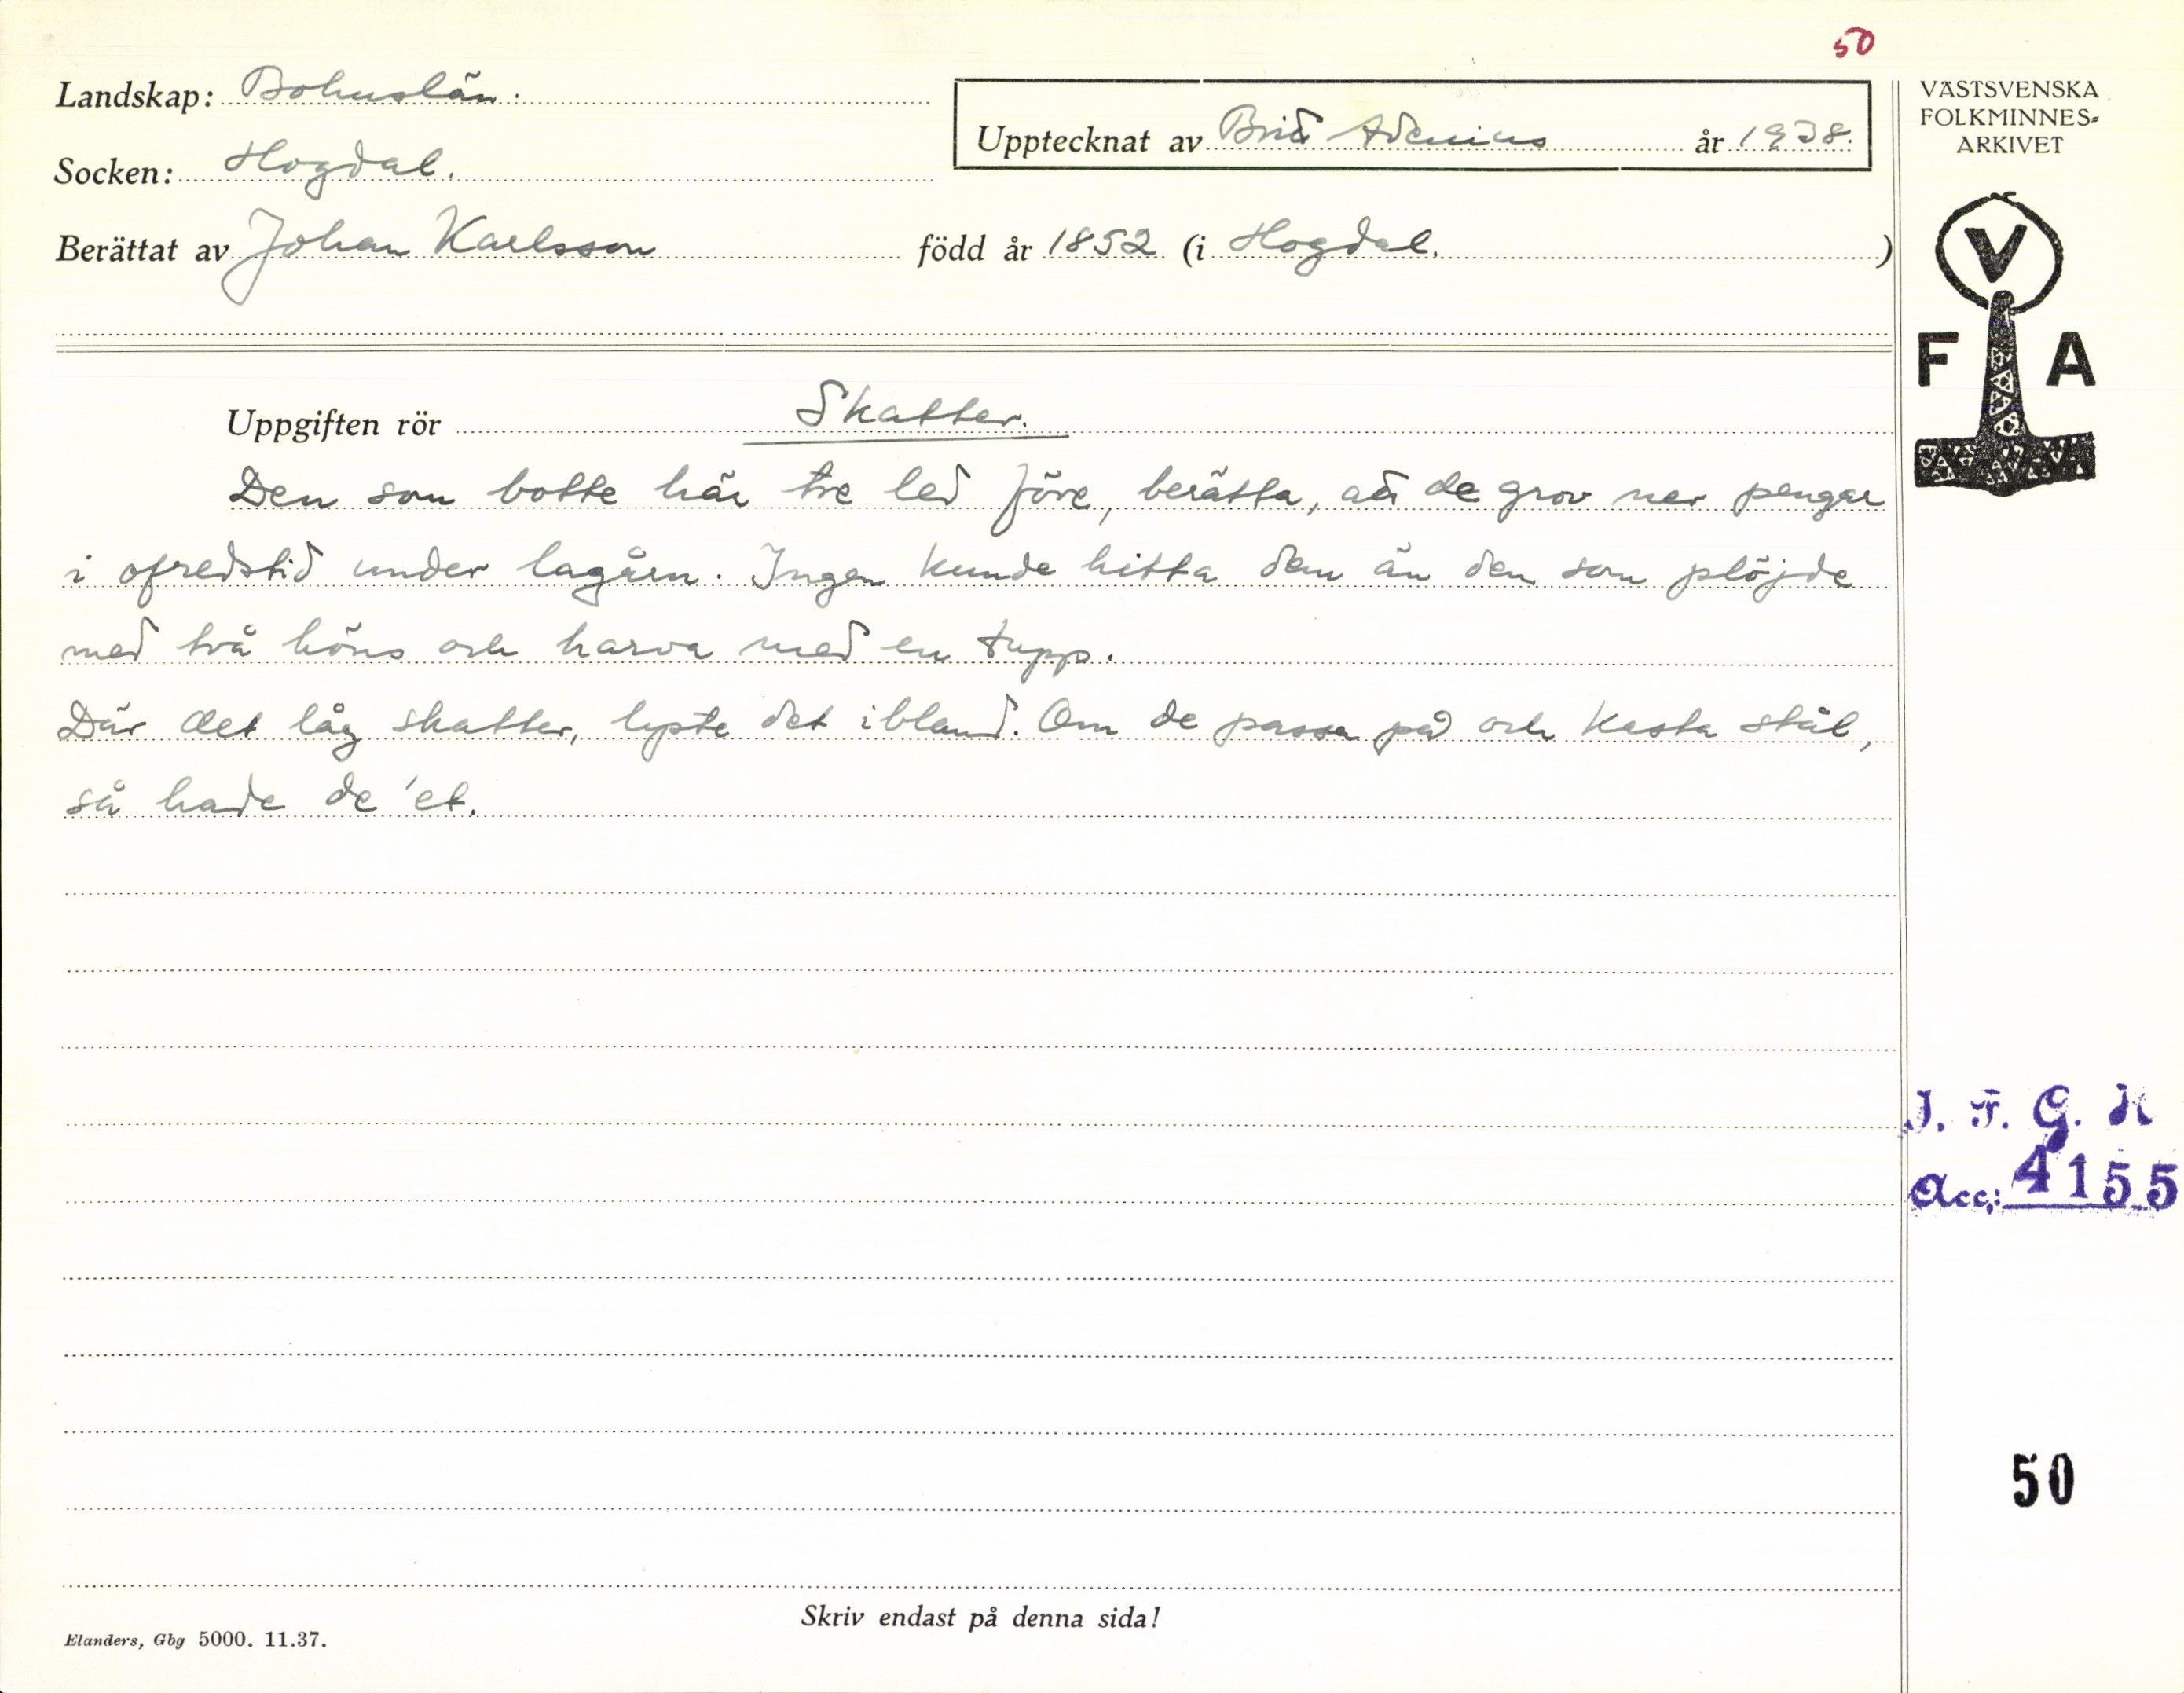 50
Landskap: Bohuslän.
Upptecknat av Brita Adenius år 1938.
Socken: Hogdal.
Berättat av Johan Karlsson född år 1852 (i Hogdal.)
VÄSTSVENSKA
FOLKMINNES=
ARKIVET
V
F A
Uppgiften rör Skatter.
Den som botte här tre led före, berätta, att de grov ner pengar
i ofredstid under lagårn. Ingen kunde hitta dem än den som plöjde
med två höns och harva med en tupp.
Där det låg skatter, lyste det ibland. Om de passa på och kasta stål,
så hade de 'et.
J. F. G. H
Acc: 4155
50
Skriv endast på denna sida!
Elanders, Gbg 5000. 11.37.